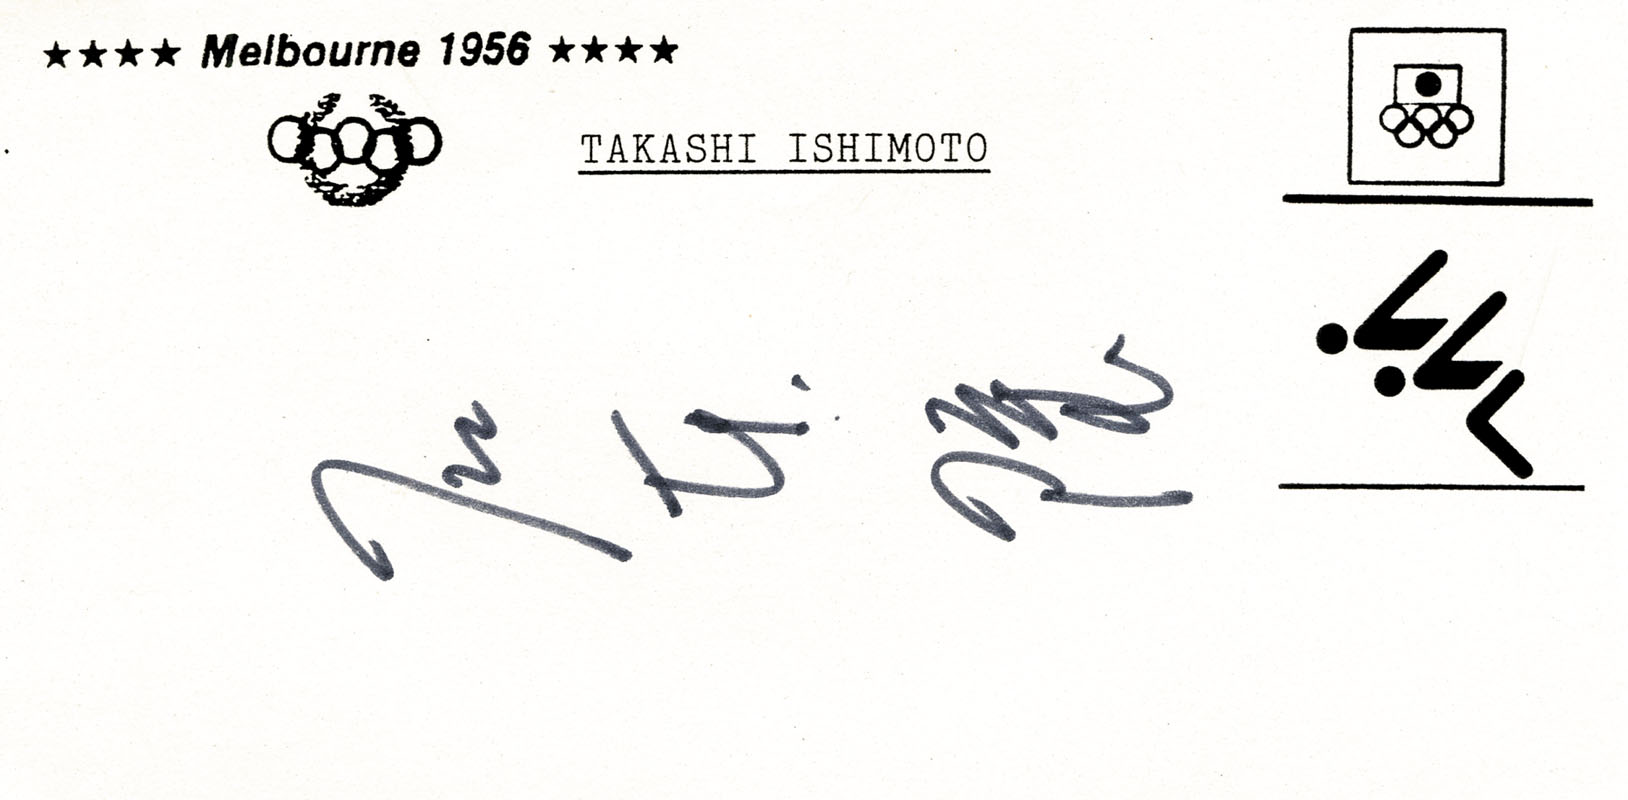 ★★★★ Melbourne 1956 ★★★★
TAKASHI ISHIMOTO